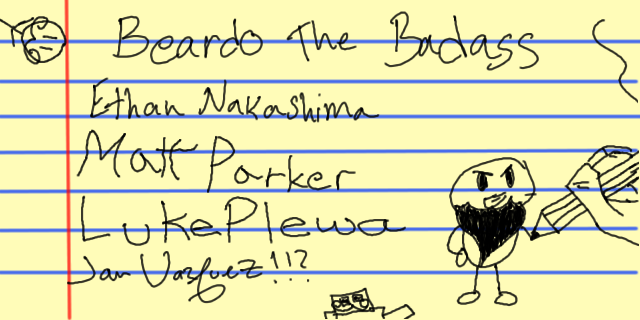 Beardo The Badass
Ethan Nakashima
Matt Parker
Luke Plewa
Jan Vazquez!!?